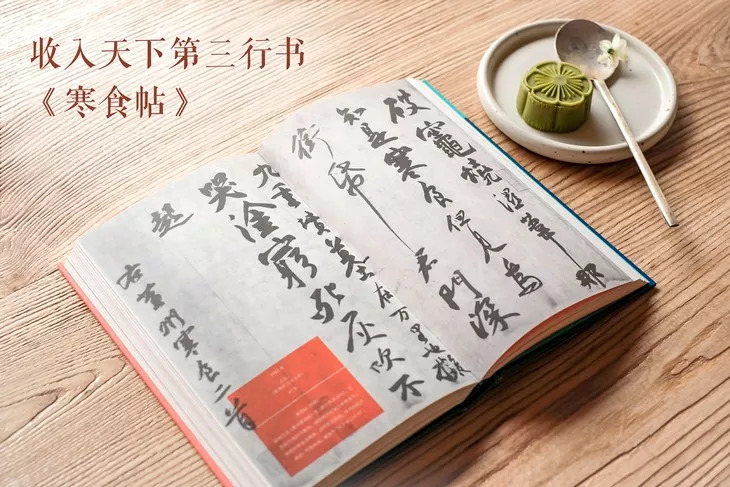 收入天下第三行书
《寒食帖》
破竈燒濕葦那
知是寒食但見烏
銜帋君門深
九重墳墓在万里也擬
哭塗窮死灰吹不
起
右黃州寒食二首